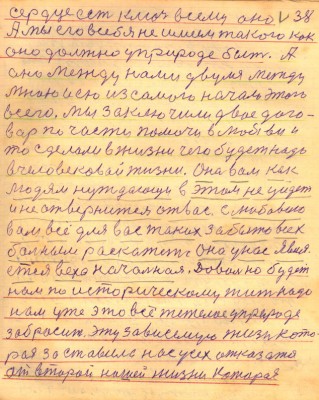 сердце ест ключ всему оно V 38
А мы его в себя не имеем такого как
оно должно у природе быть. А
оно между нами двумя между
мною и ею из самого начала этого
всего, мы заключили двое дого-
вар по части помочи в любви и
то сделали в жизни чего будет надо
в человековай жизни. Она вам как
людям нуждающим в этом не уйдет
и не отвернится от вас с любовию
вам всё для вас таких забытовех
больным расскажет. Она у нас явля
ется веха началная. Довольно будет
нам по историческому жит надо
нам уже это всё тежелае у природе
забросит. Эту зависемую жизь кото-
рая заставила нас усех отказата
от второй нашей жизни Которая